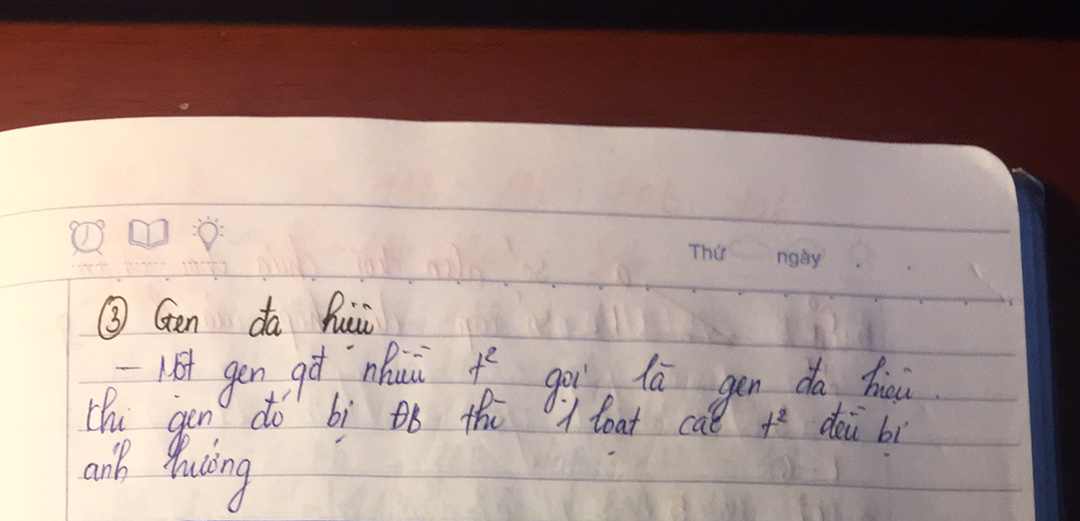 Thứ ngày
③ Gen đa hiệu
– Một gen qđ nhiều t² gọi là gen đa hiệu.
Khi gen đó bị ĐB thì 1 loạt các t² đều bị
ảnh hưởng